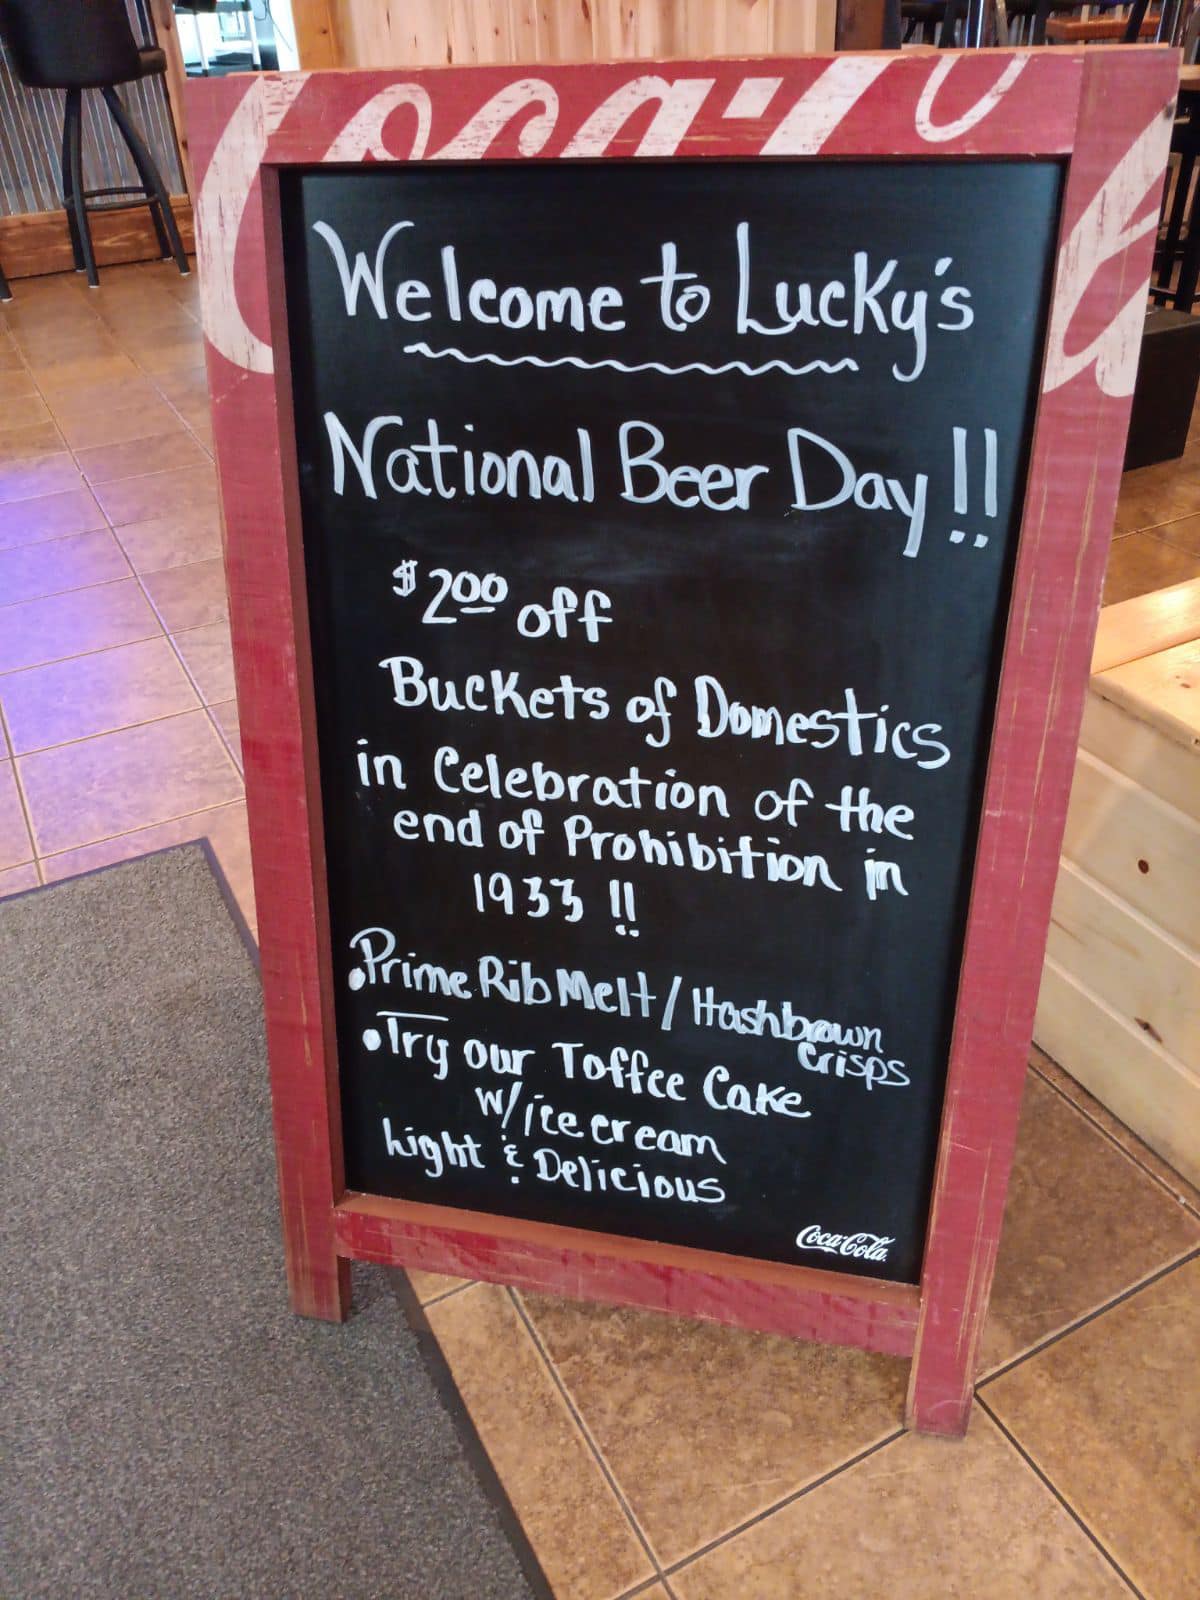 Coca-Cola
Welcome to Lucky's
National Beer Day!!
$2.00 off
Buckets of Domestics
in Celebration of the
end of Prohibition in
1933 !!
• Prime Rib Melt / Hashbrown
crisps
• Try our Toffee Cake
w/ice cream
Light & Delicious
Coca-Cola